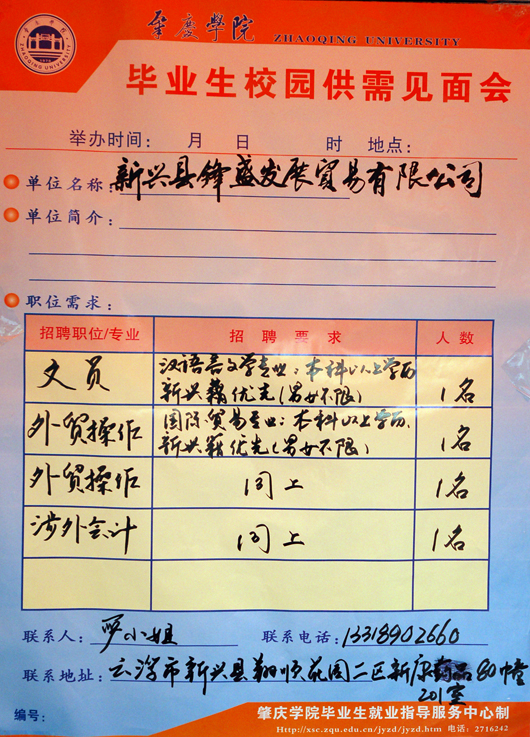 肇庆学院
ZHAOQING UNIVERSITY
毕业生校园供需见面会
举办时间: 月 日 时 地点:
单位名称: 新兴县锋盛发展贸易有限公司
单位简介:
职位需求:
招聘职位/专业 招聘要求 人数
文员 汉语言文学专业:本科以上学历 新兴籍优先(男女不限) 1名
外贸操作 国际贸易专业:本科以上学历, 新兴籍优先(男女不限) 1名
外贸操作 同上 1名
涉外会计 同上 1名
联系人: 严小姐 联系电话: 13318902660
联系地址: 云浮市新兴县翔顺花园二区新康药品80幢
201室
编号: 肇庆学院毕业生就业指导服务中心制
Http://xsc.zqu.edu.cn/jyzd/jyzd.htm 电话: 2716242